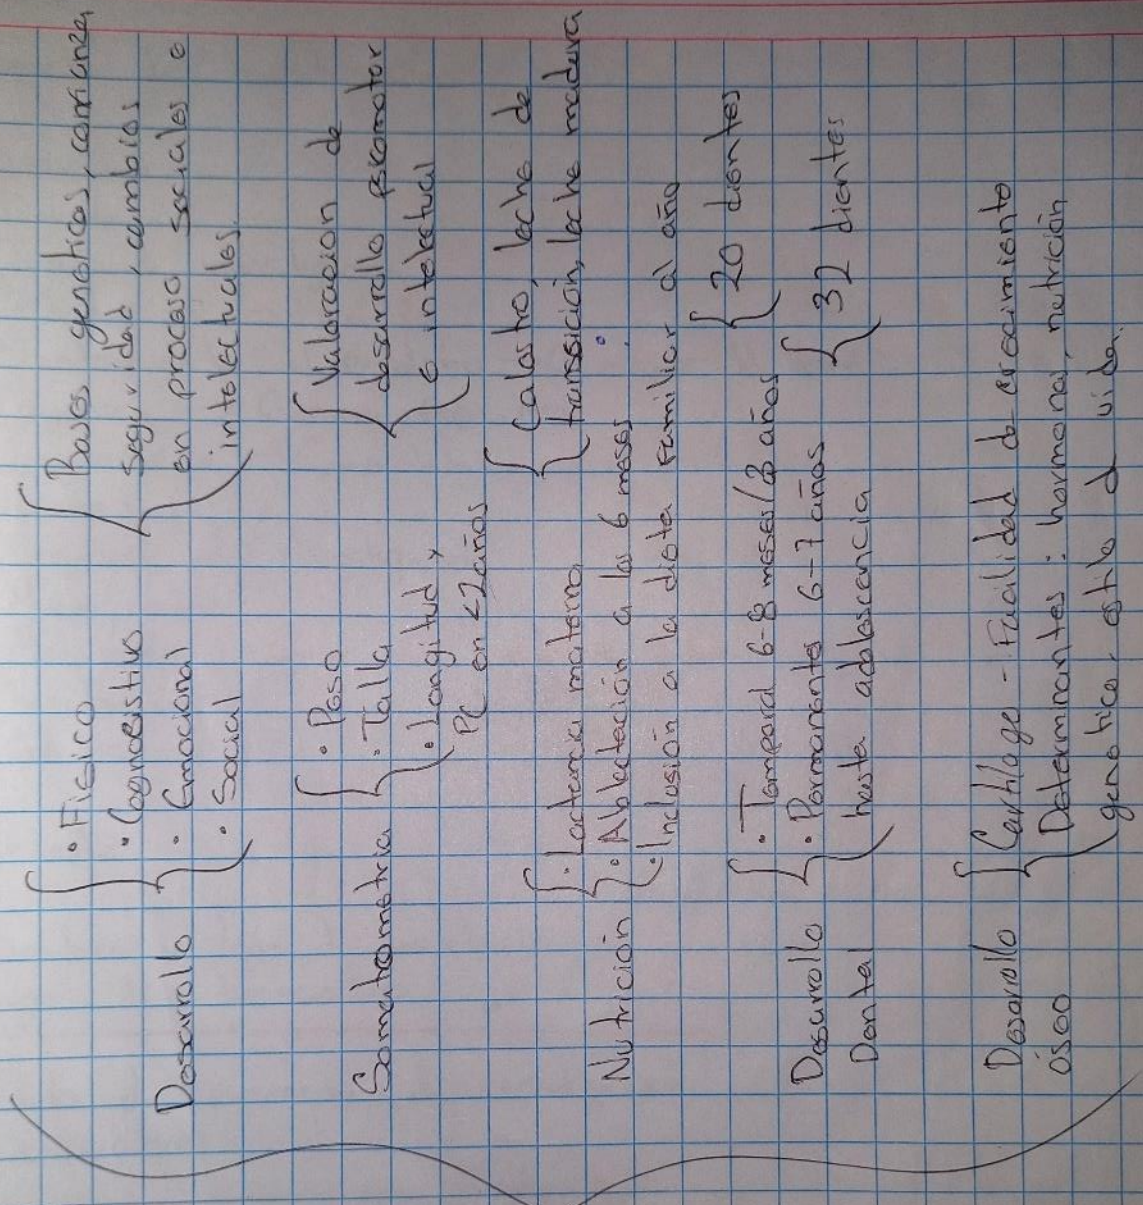 Desarrollo
• Fisico
• Cognoistivo
• Emocional
• Social
Bases geneticas, comianza
seguridad, cambios
en proceso sociales e
intelectuales.
Somatrometria
• Peso
• Talla
• Longitud y
PC en <2años
Valoracion de
desarrollo psicomotor
e intelectual
Nutrición
• Lactancia materna
• Ablactación a los 6 meses
• Inclusión a la dieta familiar al año
Calostro, leche de
transición, leche madura
Desarrollo
Dental
• Temporal 6-8 meses/3 años
• Permanante 6-7 años
hasta adolescencia
20 dientes
32 dientes
Desarrollo
óseo
Cartilago - Facilidad de crecimiento
Determinantes: hormonas, nutrición
genetica, estilo d vida.